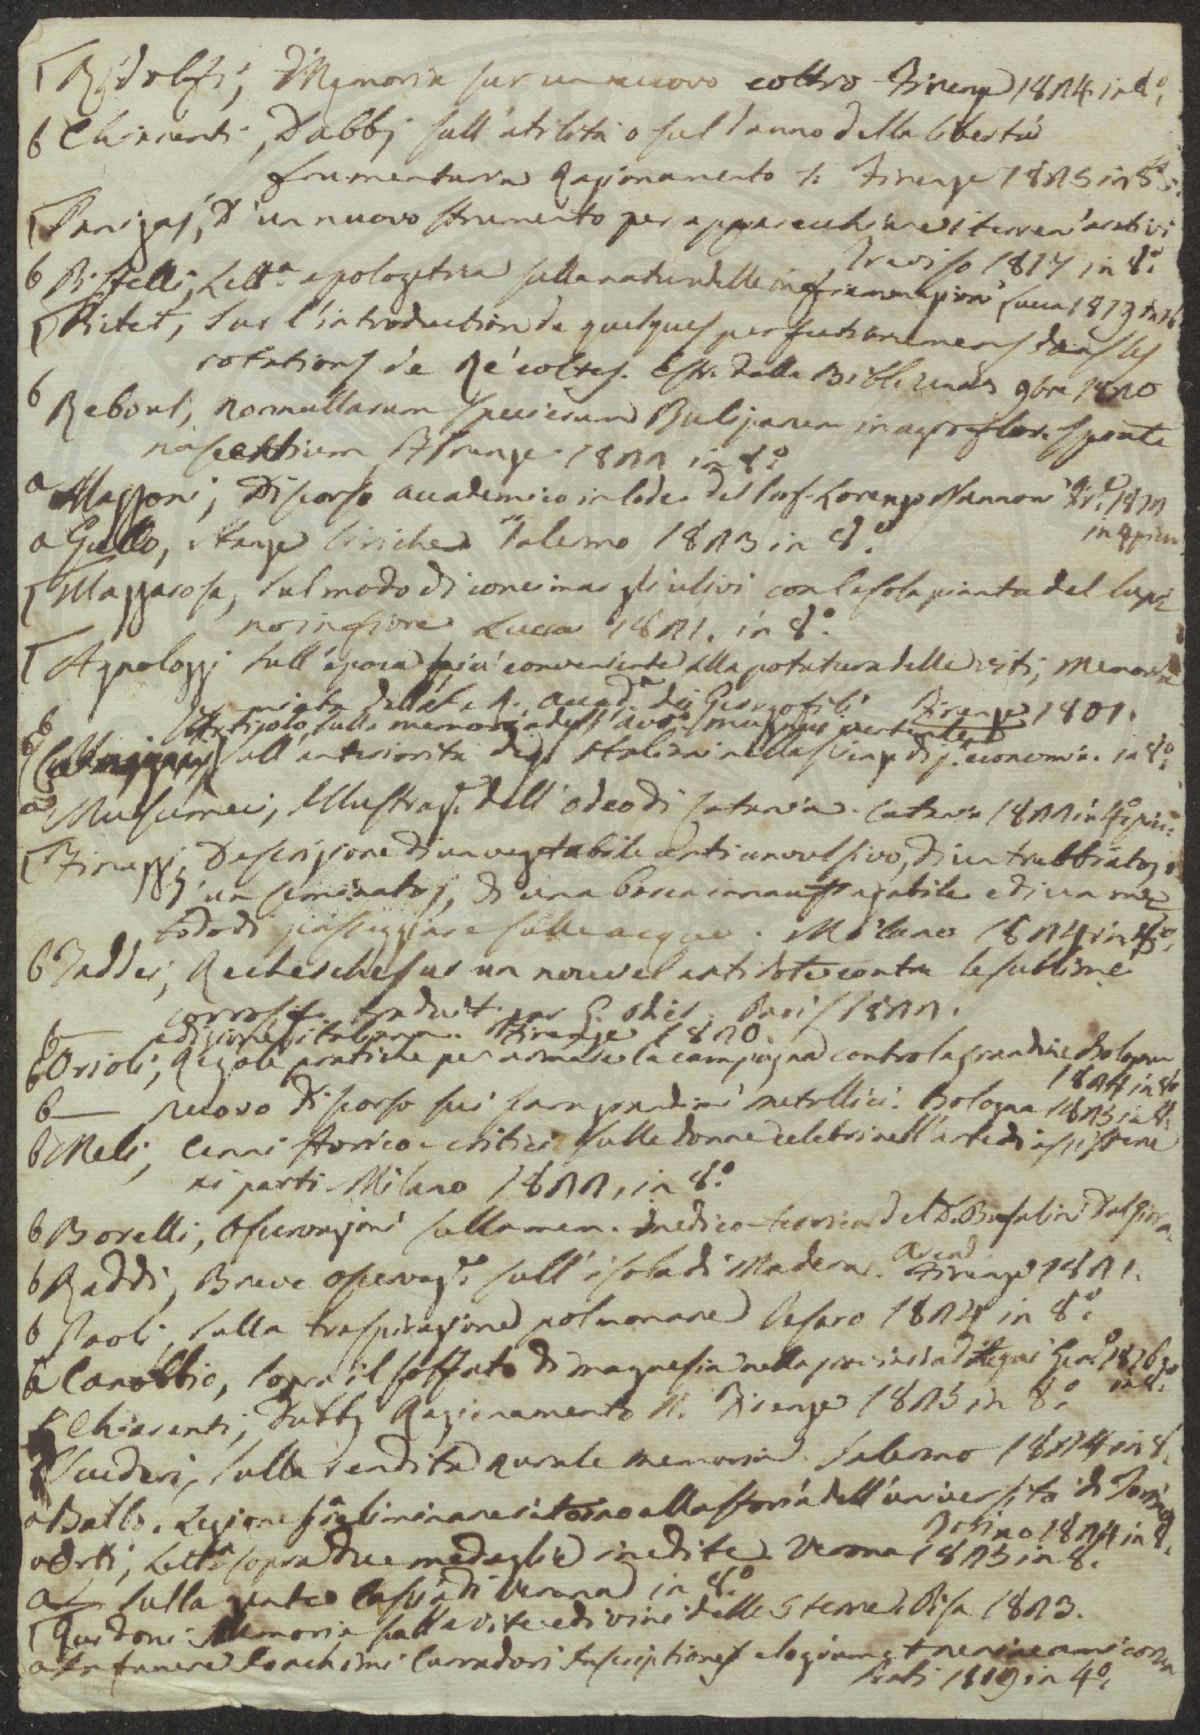 Ridolfi, Memoria sur un nuovo coltro Firenze 1824 in 8.º
b Chiarenti, Dubbj sull'utilità o sul danno della libertà
frumentaria Ragionamento 1. Firenze 1823 in 8.º
D'un nuovo strumento per apparecchiare i terreni arativi
Treviso 1817 in 8.º
b Lett.ª apologetica sulla natura delle infiammazioni Lucca 1819
Pictet, Sur l'introduction de quelques perfectionnemens dans les
rotations de Récoltes. Estr. dalla Bibl. Univ. 9bre 1820
b Reboul, nonnullarum specierum Tuliparum in agro flor. sponte
nascentium 1822 in 8.º
a Mazzoni, Discorso accademico in lode del Prof. Lorenzo Nannoni Fir. 1812
in 4 picc.
a Gallo, Stanze liriche Palermo 1823 in 8.º
Mazzarosa, Sul modo di concimar gli ulivi con la sola pianta del lupi
no in fiore Lucca 1821. in 8.º
Agnoletti Sull'epoca più conveniente alla potatura delle viti, memoria
Accad.ª dei Georgofili Firenze 1801.
Articolo sulla memoria dell'avv.
sull'anteriorità degl'Italiani nella scienza di p. economia. in 8.º
a Musumeci, Illustraz.e dell'Odeo di Catania. Catania 1822 in 4.º picc.
Descrizione di un vegetabile anticonvulsivo, di un trebbiatojo
d'un seminatojo, di una barca innaufragabile e di un me
todo di passeggiare sulle acque. Milano 1824 in 8.º
b Taddei, Recherches sur un nouvel antidote contre le sublimé
corrosif traduit par G. Odier. Paris 1822.
b — edizione italiana. Firenze 1820.
b Orioli, Regole pratiche per armare la campagna contro la grandine Bologna
1824 in 8.º
b — nuovo discorso sui paragrandini metallici. Bologna 1823 in 8.º
b Meli, Cenni storico-critici sulle donne celebri nell'arte di assistere
ai parti Milano 1822, in 8.º
b Borelli, Osservazioni sulla mem. medico- del D. Bufalini Dal Giorn.
b Raddi, Breve osservaz.e sull'isola di Madera. Firenze 1821.
b Paoli, sulla traspirazione polmonare Pesaro 1824 in 8.º
b Canobbio, Sopra il solfato di magnesia nella provincia d'Acqui Gen.
in 8.º
b Chiarenti, Dubbj Ragionamento 2. Firenze 1823 in 8.º
Scuderi, sulla rendita rurale memoria Palermo 1824 in 8.
a Balbo. Lezione preliminare intorno alla storia dell'università di Torino
Torino 1824 in 8.
a Orti, Lett.ª sopra due medaglie inedite Verona 1823 in 8.
a — Sulla di Verona in 8.º
Guidoni Memoria sulla vite e di vini delle 5 terre. Pisa 1823.
a In funere Joachimi Carradori Inscriptiones elogium et
Prati 1819 in 4.º